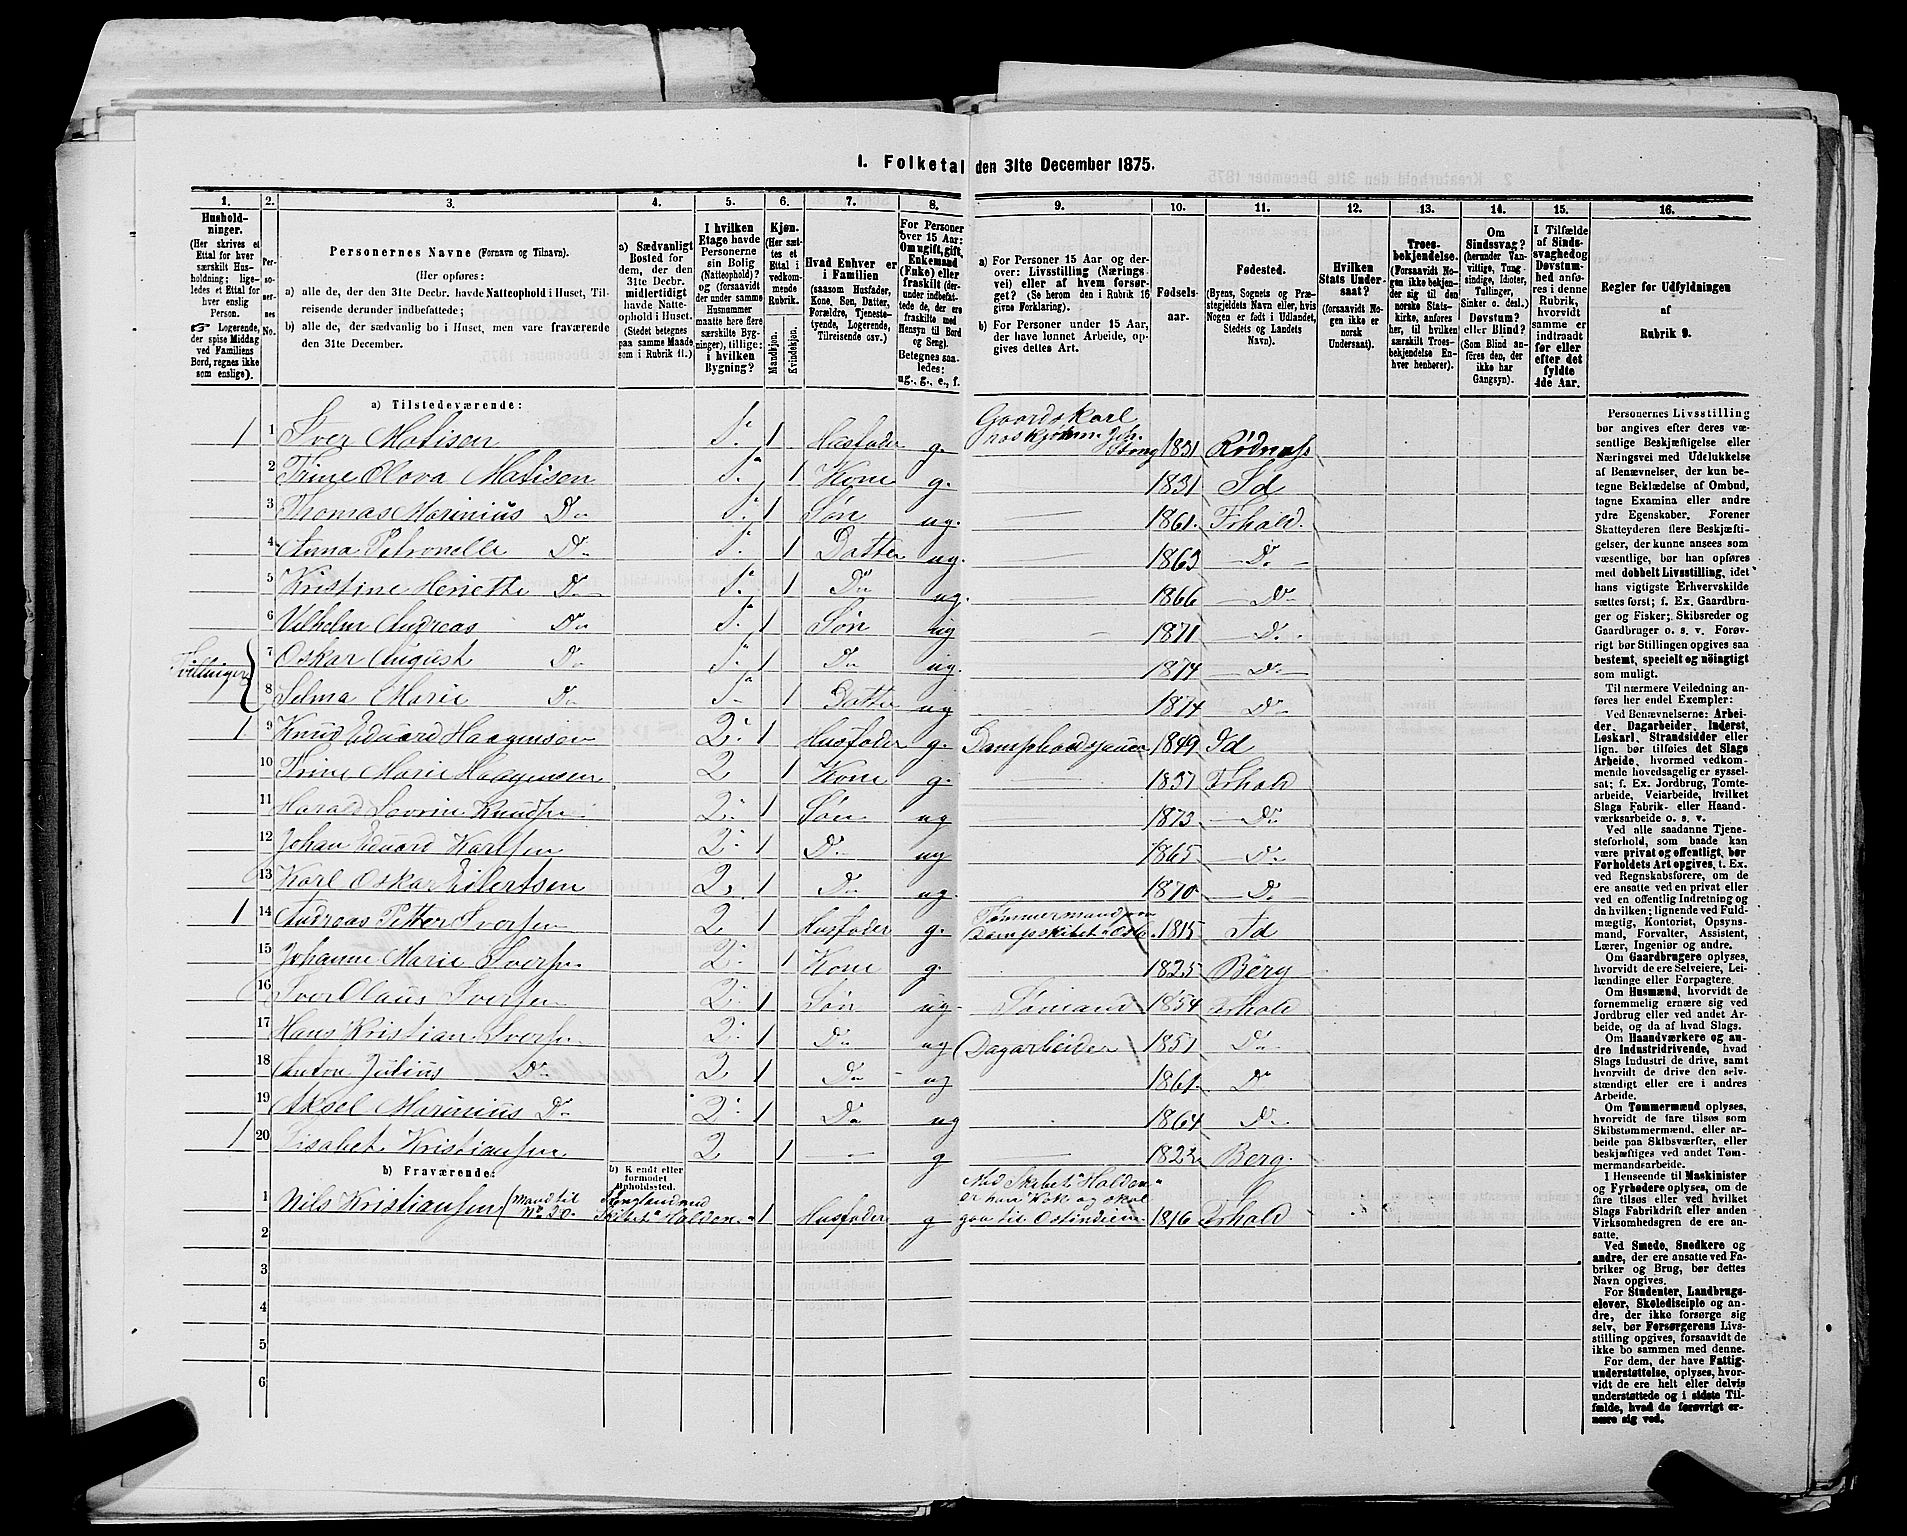 1. Folketal den 31te December 1875.
1. 2. 3. 4. 5. 6. 7. 8. 9. 10. 11. 12. 13. 14. 15. 16.
Hushold-
ninger.
(Her skrives et
Ettal for hver
særskilt Hus-
holdning; lige-
ledes et Ettal for
hver enslig
Person.
☞ Logerende,
der spise Middag
ved Familiens
Bord, regnes ikke
som enslige).
Per-
so-
ner-
nes
No.
Personernes Navne (Fornavn og Tilnavn).
(Her opføres:
a) alle de, der den 31te Decbr. havde Natteophold i Huset, Til-
reisende derunder indbefattede;
b) alle de, der sædvanlig bo i Huset, men vare fraværende
den 31te December.
a) Sædvanligt
Bosted for
dem, der den
31te Decbr.
midlertidigt
havde Natte-
ophold i Huset.
(Stedet betegnes
paa samme Maade
som i Rubrik 11.)
I hvilken
Etage havde
Personerne
sin Bolig
(Natteophold)?
og (forsaavidt
der under samme
Husnummer
maatte høre flere
særskilte Byg-
ninger), tillige:
i hvilken
Bygning?
Kjøn.
(Her sæt-
tes et
Ettal i
vedkom-
mende
Rubrik.
Mandkjøn.
Kvindekjøn.
Hvad Enhver er
i Familien
(saasom Husfader,
Kone, Søn, Datter,
Forældre, Tjeneste-
tyende, Logerende,
Tilreisende osv.)
For Personer
over 15 Aar:
Om ugift, gift,
Enkemand
(Enke) eller
fraskilt (der-
under indbefat-
tede de, der ere
fraskilte med
Hensyn til Bord
og Seng).
Betegnes saa-
ledes:
ug., g., e., f.
a) For Personer 15 Aar og der-
over: Livsstilling (Nærings-
vei) eller af hvem forsør-
get? (Se herom den i Rubrik 16
givne Forklaring).
b) For Personer under 15 Aar,
der have lønnet Arbeide, op-
gives dettes Art.
Fødsels-
aar.
Fødested.
(Byens, Sognets og Præ-
stegjeldets Navn eller, hvis
Nogen er født i Udlandet,
Stedets og Landets
Navn).
Hvilken
Stats Under-
saat?
(forsaavidt No-
gen ikke er
norsk
Undersaat).
Troes-
bekjendelse.
(Forsaavidt No-
gen ikke bekjen-
der sig til den
norske Stats-
kirke, anføres
her, til hvilken
særskilt Troes-
bekjendelse En-
hver henhører).
Om
Sindssvag?
(herunder Van-
vittige, Tung-
sindige, Idioter,
Tullinger,
Sinker o. desl.)
Døvstum?
eller Blind?
(Som Blind an-
føres den, der
ikke har
Gangsyn).
I Tilfælde
af Sinds-
svaghed og
Døvstum-
hed anfø-
res i denne
Rubrik,
hvorvidt
samme er
indtraadt
før eller
efter det
fyldte
4de Aar.
Regler for Udfyldningen
af
Rubrik 9.
a) Tilstedeværende:
1 1 Iver Matisen 1. 1 Husfader g. Gaardskarl hos 1831 Rødnæss
2 Trine Olava Matisen 1. 1 Kone g. 1831 Id
3 Thomas Marinius Do 1. 1 Søn ug. 1861. Frhald.
4 Anna Petronelle Do 1. 1 Datter ug. 1863 Do
5 Kristine Heriette Do 1. 1 Do ug. 1866 Do
6 Vilhelm Andreas Do 1. 1 Søn ug 1871 Do
Tvillinger
7 Oskar August Do 1. 1 Do ug. 1874 Do
8 Selma Marie Do 1. 1 Datter ug 1874 Do
1 9 Knud Eduard Haagensen 2. 1 Husfader g. 1849 Id
10 Trine Marie Haagensen 2 1 Kone g. 1837 Frhald
11 Harald Sevrin Knudsen 2. 1 Søn ug 1873 Do
12 Johan Eduard Karlsen 2. 1 Do ug 1865 Do
13 Karl Oskar Eilertsen 2. 1 Do ug. 1870 Do
1 14 Andreas Petter Iversen 2. 1 Husfader g. Tømmermand paa Dampskibet 1815 Id
15 Johanne Marie Iversen 2. 1 Kone g. 1825 Berg
16 Iver Claus Iversen 2. 1 Søn ug. Sømand 1854 Frhald
17 Hans Kristian Iversen 2. 1 Do ug Dagarbeider 1851 Do
18 Anton Julius Do 2 1 Do ug 1861. Do
19 Aksel Marinius Do 2. 1 Do ug 1864 Do
1 20 Lisabet Kristiansen 2 1 g 1823 Berg.
b) Fraværende:
b) Kendt eller
formodet
Opholdssted.
1 Nils Kristiansen (Mand til No 20. England med Skibet "Halden" 1 Husfader g Med Skibet "Halden" er han Kok og skal gaa til Ostindien 1816 Frhald
2
3
4
5
6
Personernes Livsstilling
bør angives efter deres væ-
sentlige Beskjæftigelse eller
Næringsvei med Udelukkelse
af Benævnelser, der kun be-
tegne Beklædelse af Ombud,
tagne Examina eller andre
ydre Egenskaber. Forener
Skatteyderen flere Beskjæfti-
gelser, der kunne ansees som
væsentlige, bør han opføres
med dobbelt Livsstilling, idet
hans vigtigste Erhvervskilde
sættes først; f. Ex. Gaardbru-
ger og Fisker; Skibsreder og
Gaardbruger o. s. v. Forøv-
rigt bør Stillingen opgives saa
bestemt, specielt og nöiagtigt
som muligt.
Til nærmere Veiledning an-
føres her endel Exempler:
Ved Benævnelserne: Arbei-
der, Dagarbeider, Inderst,
Løskarl, Strandsidder eller
lign. bør tilføies det Slags
Arbeide, hvormed vedkom-
mende hovedsagelig er syssel-
sat; f. Ex. Jordbrug, Tomte-
arbeide, Veiarbeide, hvilket
Slags Fabrik- eller Haand-
værksarbeide o. s. v.
Ved alle saadanne Tjene-
steforhold, som baade kan
være privat og offentligt, bør
Forholdets Art opgives, t. Ex.
ved Regnskabsførere, om de
ere ansatte ved en privat eller
ved en offentlig Indretning og
da hvilken; lignende ved Fuld-
mægtig, Kontorist, Opsyns-
mand, Forvalter, Assistent,
Lærer, Ingeniør og andre.
Om Gaardbrugere oplyses,
hvorvidt de ere Selveiere, Lei-
lændinge eller Forpagtere.
Om Husmænd, hvorvidt de
fornemmelig ernære sig ved
Jordbrug eller ved andet Ar-
beide, og da af hvad Slags.
Om Haandværkere og an-
dre Industridrivende, hvad
Slags Industri de drive, samt
hvorvidt de drive den selv-
stændigt eller ere i andres
Arbeide.
Om Tømmermænd oplyses,
hvorvidt de fare tilsøs som
Skibstømmermænd, eller ar-
beide paa Skibsværfter, eller
beskjæftiges ved andet Tøm-
mermandsarbeide.
I Henseende til Maskinister
og Fyrbødere oplyses, om de
fare tilsøs eller ved hvilket
Slags Fabrikdrift eller anden
Virksomhedsgren de ere an-
satte.
Ved Smede, Snedkere og
andre, der ere ansatte ved Fa-
briker og Brug, bør dettes
Navn opgives.
For Studenter, Landbrugs-
elever, Skoledisciple og an-
dre, der ikke forsørge sig
selv, bør Forsørgerens Livs-
stilling opgives, forsaavidt de
ikke bo sammen med denne.
For dem, der have Fattig-
understøttelse, oplyses, hvor-
vidt de ere helt eller delvis
understøttede og i sidste Til-
fælde, hvad de forøvrigt er-
nære sig ved.